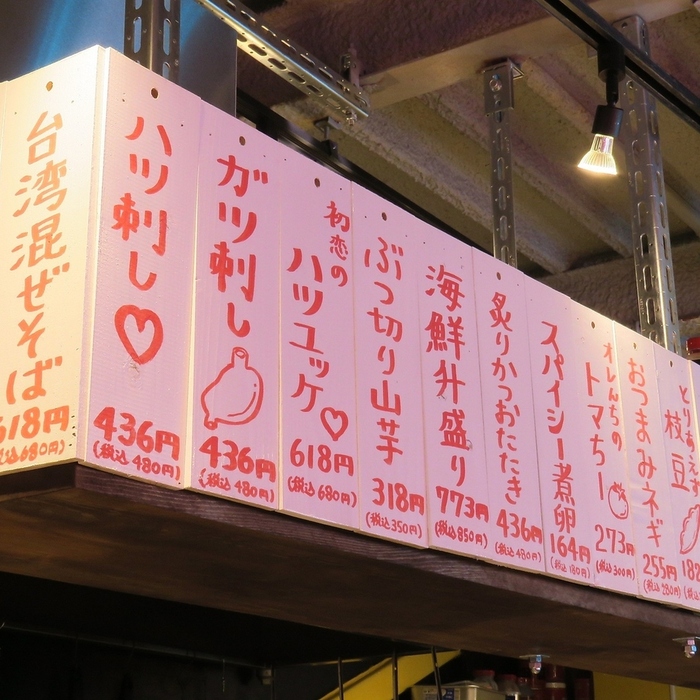 台湾混ぜそば
618円
(税込680円)
ハツ刺し♡
436円
(税込480円)
ガツ刺し
436円
(税込480円)
初恋の
ハツユッケ♡
618円
(税込680円)
ぶつ切り山芋
318円
(税込350円)
海鮮升盛り
773円
(税込850円)
炙りかつおたたき
436円
(税込480円)
スパイシー煮卵
164円
(税込180円)
オレんちの
トマちー
273円
(税込300円)
おつまみネギ
255円
(税込280円)
枝豆
182